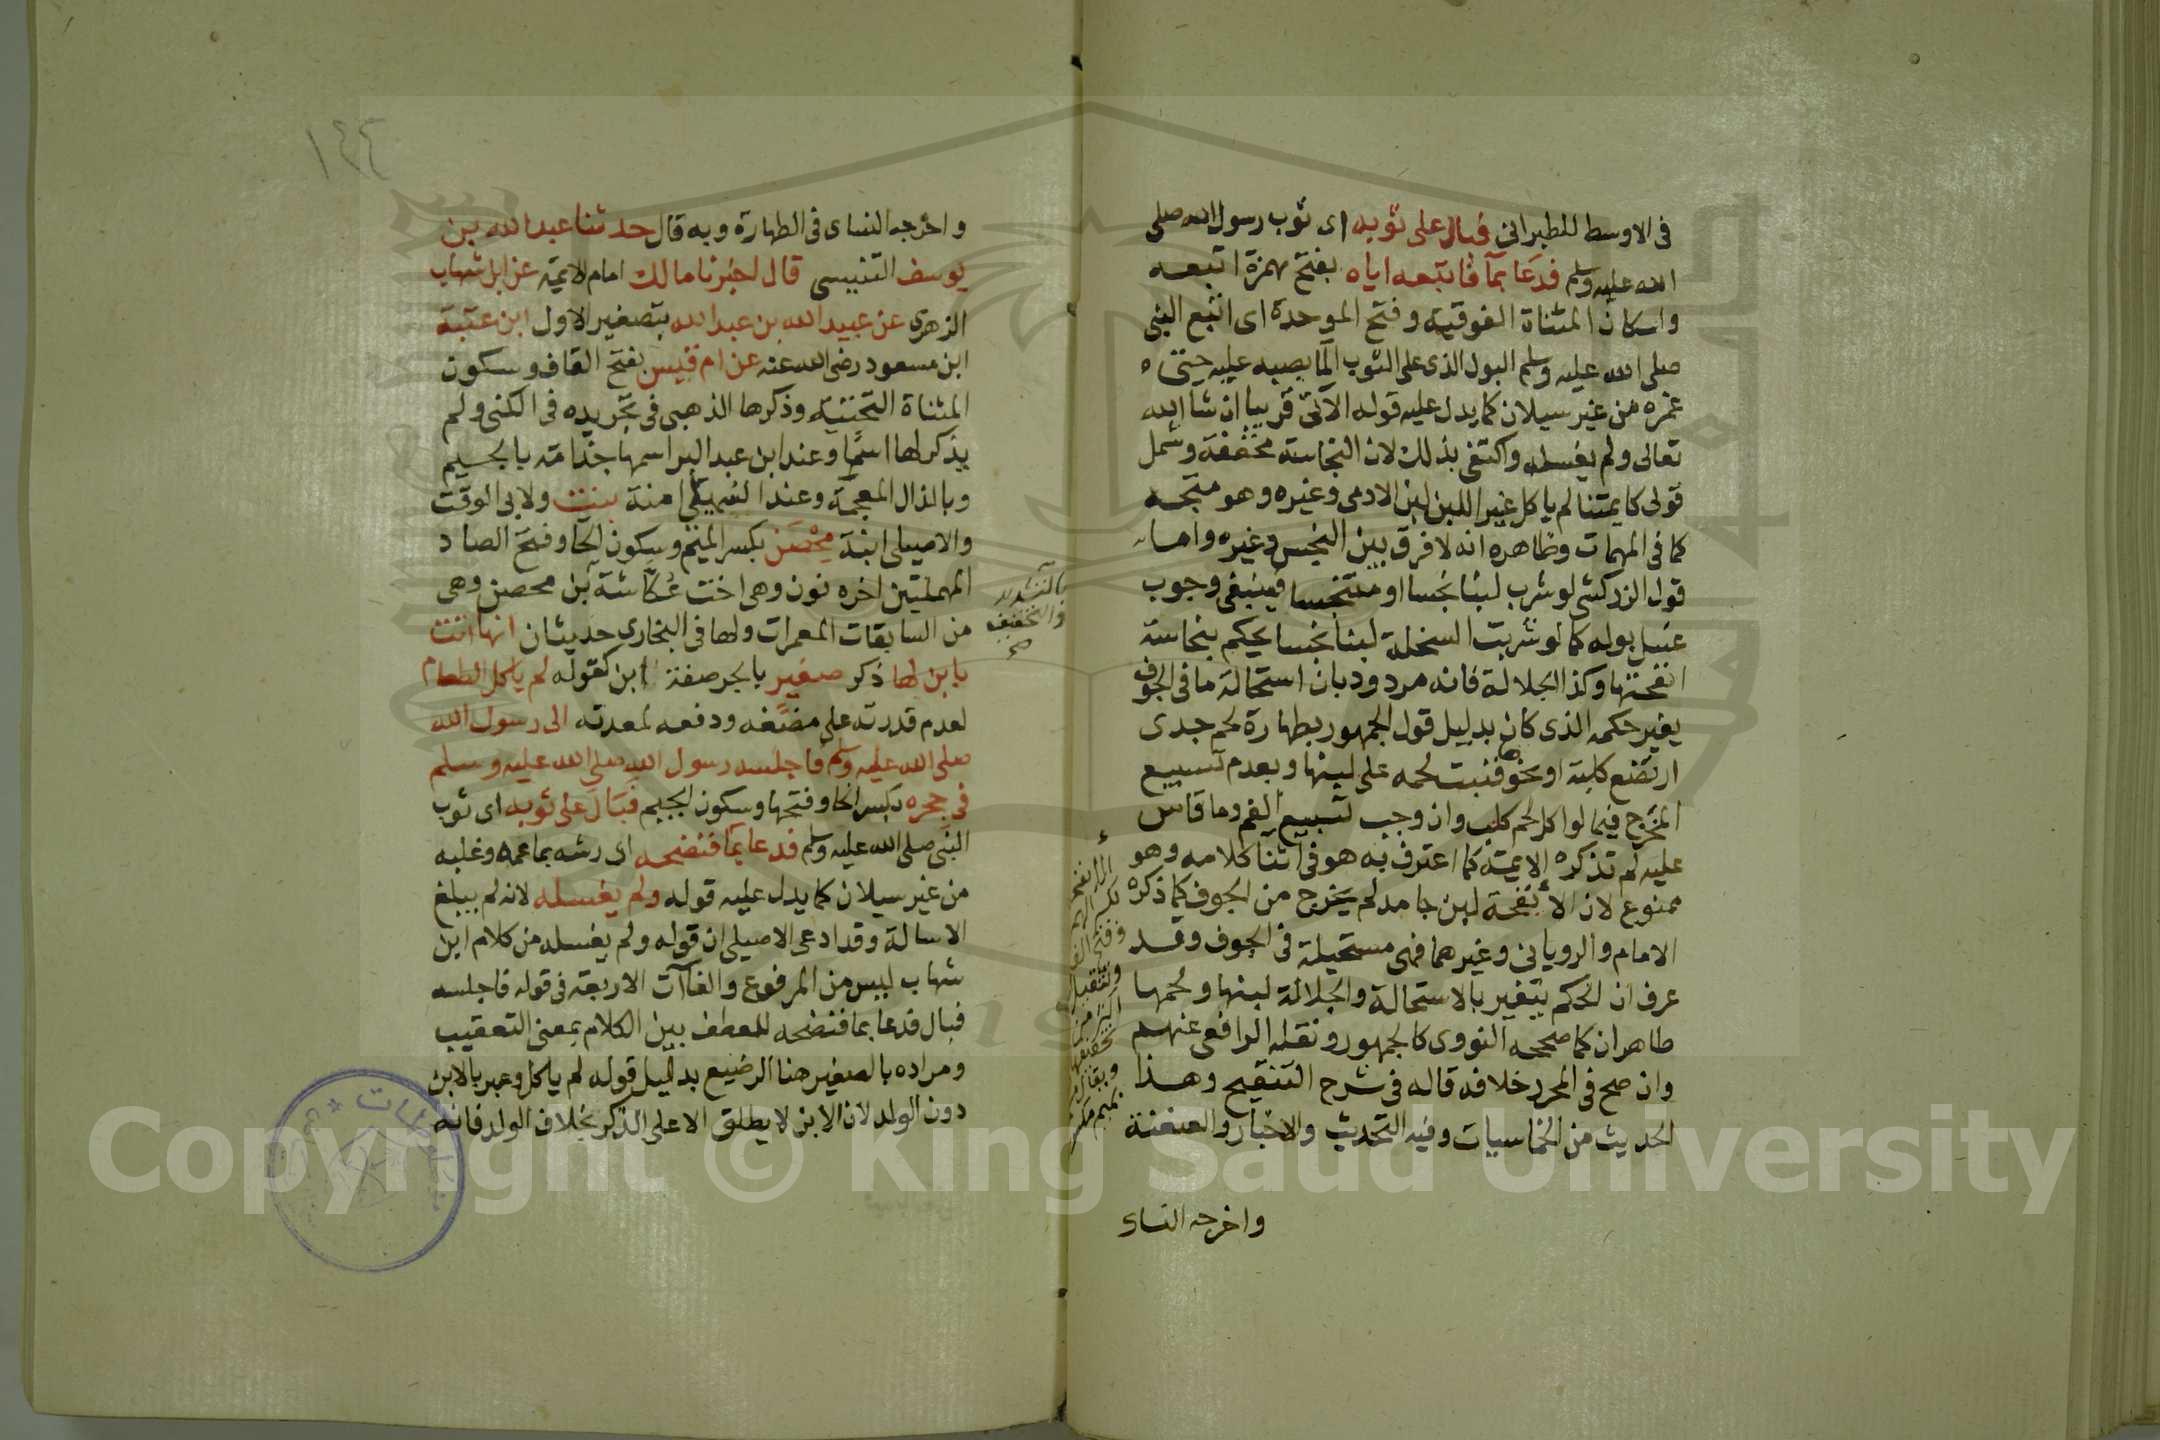 في الاوسط للطبراني فبال على ثوبه اى ثوب رسول الله صلى
الله عليه وسلم فدعا بمآ فاتبعه اياه بفتح همزة اتبعه
واسكان المثناة الفوقية وفتح الموحدة اى اتبع النبى
صلى الله عليه وسلم البول الذى على الثوب المآ يصبه عليه حتى
غمره من غير سيلان كما يدل عليه قوله الآتى قريبا ان شا الله
تعالى ولم يغسله واكتفى بذلك لان النجاسة مخففة وشمل
قولى كايمتنا لم ياكل غير اللبن لبن الادمى وغيره وهو متجه
كما فى المهمات وظاهره انه لا فرق بين النجس وغيره واما
قول الزركشى لو شرب لبنا نجسا او متنجسا فينبغى وجوب
غسل بوله كما لو شربت السخلة لبنا نجسا يحكم بنجاسة
انفحتها وكذا الجلالة فانه مردود بان استحالة ما فى الجوف
يغير حكمه الذى كان بدليل قول الجمهور بطهارة لحم جدى
ارتضع كلبة او نحوه فنبت لحمه على لبنها وبعدم تسبيع
المخرج فيما لو اكل لحم كلب وان وجب تسبيع الفم وما قاس
عليه لم تذكره الايمة كما اعترف به هو فى اثنا كلامه وهو
ممنوع لان الانفحة لبن جامد لم يخرج من الجوف كما ذكره
الامام والرويانى وغيرهما فهى مستحيلة فى الجوف وقد
عرف ان الحكم يتغير بالاستحالة والجلالة لبنها ولحمها
طاهران كما صححه النووى كالجمهور ونقله الرافعى عنهم
وان صح فى المحرر خلافه قاله فى شرح التنقيح وهذا
الحديث من الخماسيات وفيه التحديث والاخبار والعنعنة
واخرجه النساى
الانفحة
بكسر الهمزة
وفتح الفا
وتثقيل
اكثر من
تخفيفها
ويقال
بميم
١٤٤
واخرجه النساى فى الطهارة وبه قال حدثنا عبد الله بن
يوسف التنيسى قال اخبرنا مالك امام الايمة عن ابن شهاب
الزهرى عن عبيد الله بن عبد الله بتصغير الاول ابن عتبة
ابن مسعود رضى الله عنه عن ام قيس بفتح القاف وسكون
المثناة التحتية وذكرها الذهبى فى تجريده فى الكنى ولم
يذكر لها اسما وعند ابن عبد البر اسمها جذامة بالجيم
وبالذال المعجمة وعند السهيلى امنة بنت ولابى الوقت
والاصيلى ابنة محصن بكسر الميم وسكون الحا وفتح الصاد
المهملتين اخره نون وهى اخت عكاشة بن محصن وهى
بالتشديد
والتخفيف
صح
من السابقات المعمرات ولها فى البخارى حديثان انها اتت
بابن لها ذكر صغير بالجر صفة ابن كقوله لم ياكل الطعام
لعدم قدرته على مضغه ودفعه لمعدته الى رسول الله
صلى الله عليه وسلم فاجلسه رسول الله صلى الله عليه وسلم
فى حجره بكسر الحا وفتحها وسكون الجيم فبال على ثوبه اى ثوب
النبى صلى الله عليه وسلم فدعا بمآ فنضحه اى رشه بما عمه وغلبه
من غير سيلان كما يدل عليه قوله ولم يغسله لانه لم يبلغ
الاسالة وقد ادعى الاصيلى ان قوله ولم يغسله من كلام ابن
شهاب ليس من المرفوع والفاآت الاربعة فى قوله فاجلسه
فبال فدعا بما فنضحه للعطف بين الكلام بمعنى التعقيب
ومراده بالصغير هنا الرضيع بدليل قوله لم ياكل وعبر بالابن
دون الولد لان الابن لا يطلق الا على الذكر بخلاف الولد فانه
Copyright © King Saud University